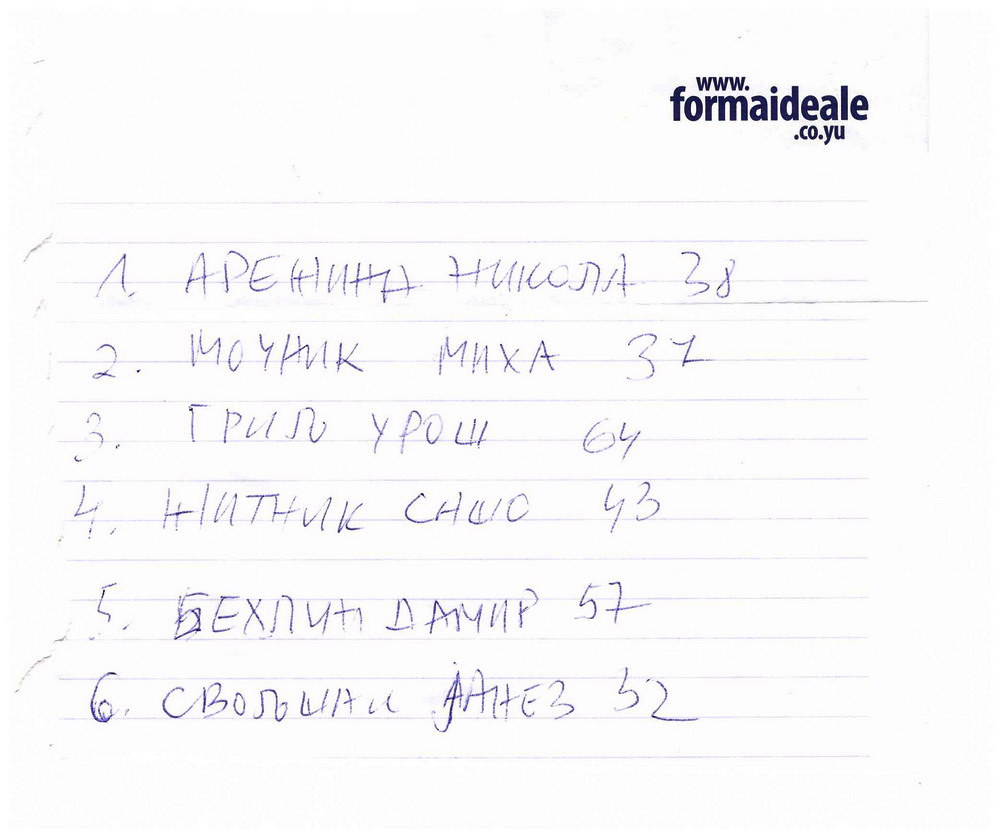 www.
formaideale
.co.yu
1. АРЕЖИНА НИКОЛА 38
2. МОЧНИК МИХА 37
3. ГРИЉ УРОШ 64
4. ЖИТНИК САШО 43
5. БЕХЛИН ДАМИР 57
6. СВОЉШАК ЈАНЕЗ 52